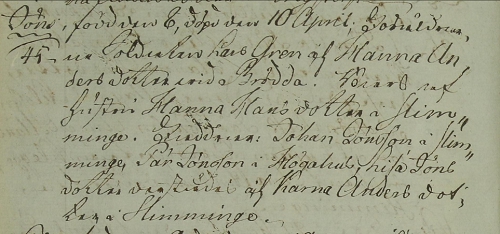 Jöns, född den 6, döpt den 10 April. Föräldrar„
45 ne Soldaten Lars Gren af Hanna An
dersdotter vid a Brodda. Bars af
Hustru Hanna Månsdotter i Slim„
minge. Faddrar: Johan Jönsson i Slim„
minge, Pär Jönsson i Högahus, Elsa Jöns
dotter derstädes af Karna Anders dot„
ter i Slimminge.